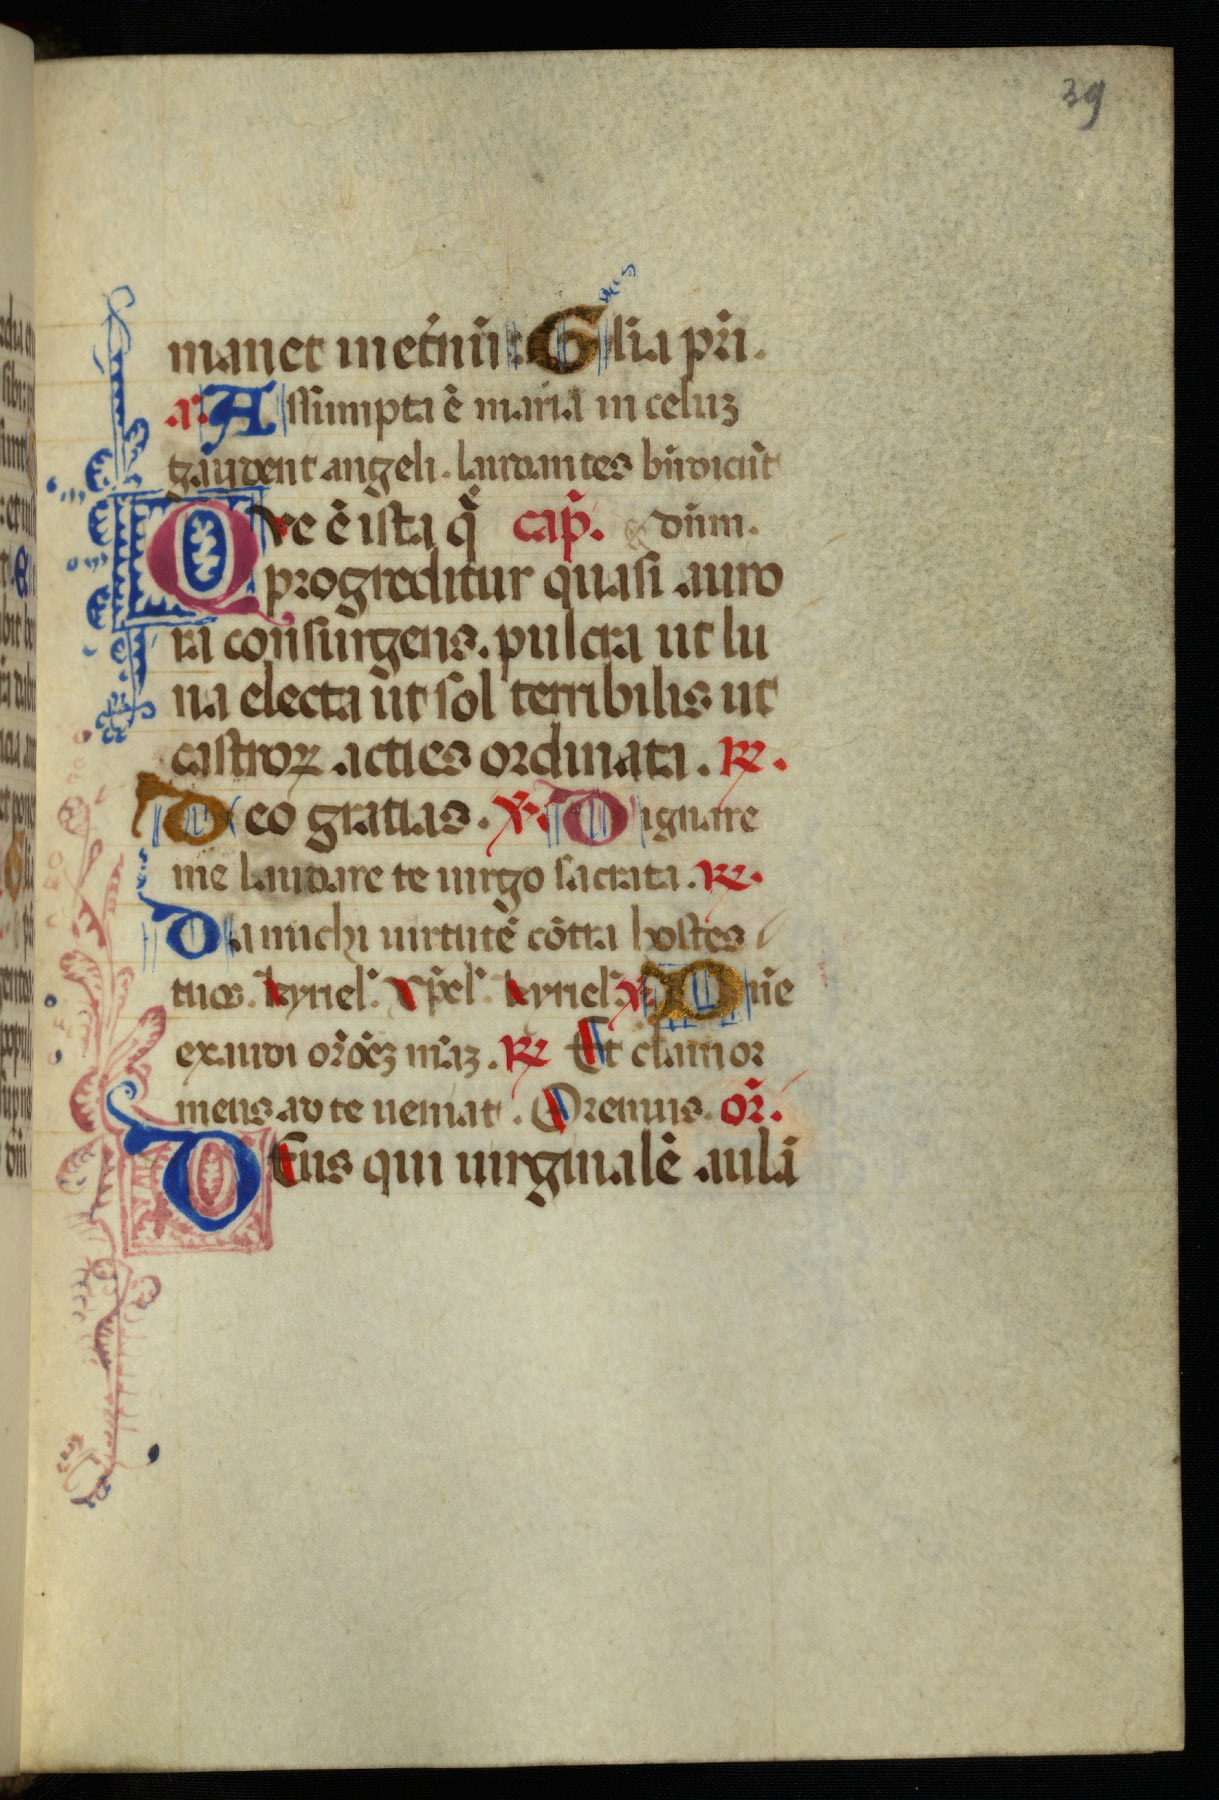 39
manet in et̄nū: Gl̄ia pr̄i.
a. Assūmpta ē maria in celuʒ
gaudent angeli. laudantes bn̄dicūt
Que ē ista q̄ cap̄. dn̄m.
progreditur quasi auro
ra consurgens. pulcra ut lu
na electa ut sol terribilis ut
castroꝝ acties ordinata. ℟.
Deo gratias. ℣. Dignare
me laudare te uirgo sacrata. ℟.
Da michi uirtutē cōtra hostes
tuos. kyriel. xp̄el. kyriel. ℣. Dn̄e
exaudi or̄oēʒ meaʒ. ℟ Et clamor
meus ad te ueniat. Oremus. or̄.
Deus qui uirginalē aulā